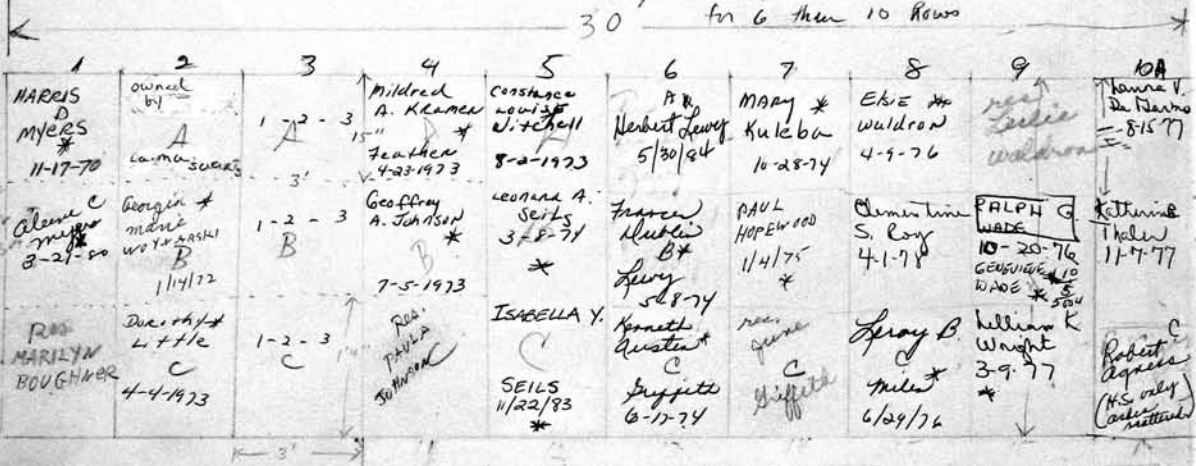 30
for 6 than 10 Rows
1 2 3 4 5 6 7 8 9 10A
HARRIS
D
MYERS
*
11-17-70
owned
by
A
1 - 2 - 3
A
15"
3'
Mildred
A. Kramer
D
*
Feather
4-23-1973
Constance
Louise
Mitchell
A
8-2-1973
A *
Herbert Lewy
5/30/84
MARY *
Kuleba
10-28-74
ElsiE *
WaldroN
4-9-76
res.
Leslie
waldron
Laura V.
De Marmo
8-15-77
Alene C
Myers
*
3-29-80
Georgia *
marie
B
1/14/72
1 - 2 - 3
B
Geoffrey
A. Johnson
*
B
7-5-1973
Leonard A.
Seils
3-8-74
*
Frances
Dublin
B*
Lewy
5-8-74
PAUL
HOPEWOOD
1/4/75
*
Clementine
S. Roy
4-1-78
RALPH G.
WADE
10-20-76
GENEVIEVE
WADE *
10
5
Katherine
Thaler
11-7-77
Res
MARILYN
BOUGHNER
Dorothy *
Little
C
4-4-1973
1-2-3
C
Res.
PAULA
JOHNSON
ISABELLA Y.
C
SEILS
11/22/83
*
Kenneth
Austin *
C
Griffith
6-17-74
res.
June
C
Griffith
Leroy B.
C
Miles *
6/29/76
William K
Wright
3-9-77
*
C
Robert
Agness
(H.S. only
ashes
scattered)
3'